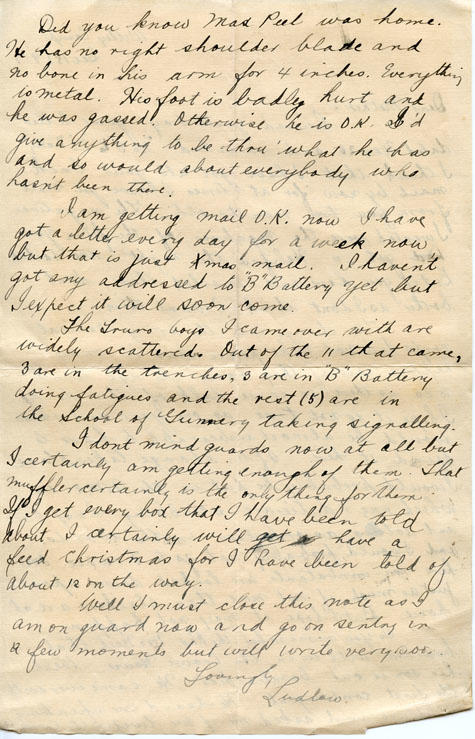 Did you know Max Peel was home.
He has no right shoulder blade and
no bone in his arm for 4 inches. Everything
is metal. His foot is badley hurt and
he was gassed. Otherwise he is O.K. I'd
give anything to be thru' what he has
and so would about everybody who
hasn't been there.
I am getting mail O.K. now I have
got a letter every day for a week now
but that is just Xmas mail. I havent
got any addressed to "B" Battery yet but
I expect it will soon come.
The Truro boys I came over with are
widely scattered. Out of the 11 that came,
3 are in the trenches, 3 are in "B" Battery
doing fatigues and the rest (5) are in
the School of Gunnery taking signalling.
I dont mind guards now at all but
I certainly am getting enough of them. That
muffler certainly is the only thing for them.
If I get every box that I have been told
about I certainly will have a
feed Christmas for I have been told of
about 12 on the way.
Well I must close this note as I
am on guard now and go on sentry in
a few moments but will write very soon.
Lovingly
Ludlow.